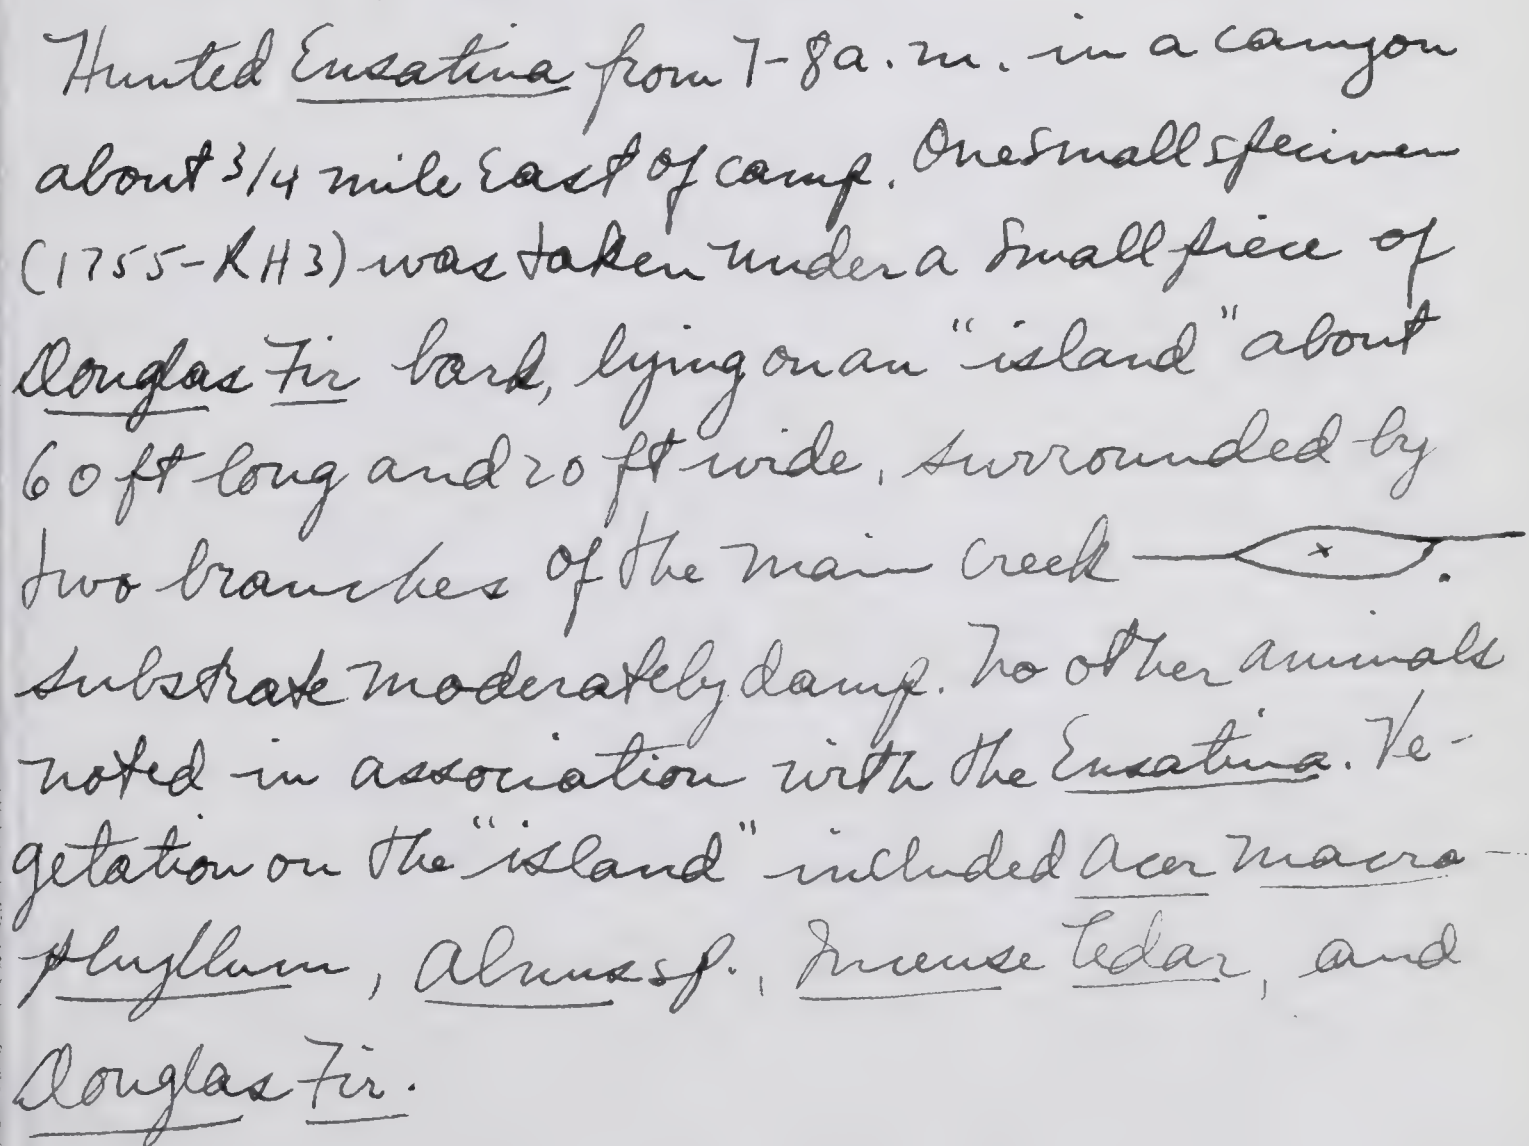 Hunted Ensatina from 7-8 a.m. in a canyon
about 3/4 mile East of camp. One small specimen
(1755-RH3) was taken under a small piece of
Douglas Fir bark, lying on an "island" about
60 ft long and 20 ft wide, surrounded by
two branches of the main creek .
substrate moderately damp. No other animals
noted in association with the Ensatina. Ve-
getation on the "island" included Acer macro-
phyllum, Alnus sp., Incense Cedar, and
Douglas Fir.